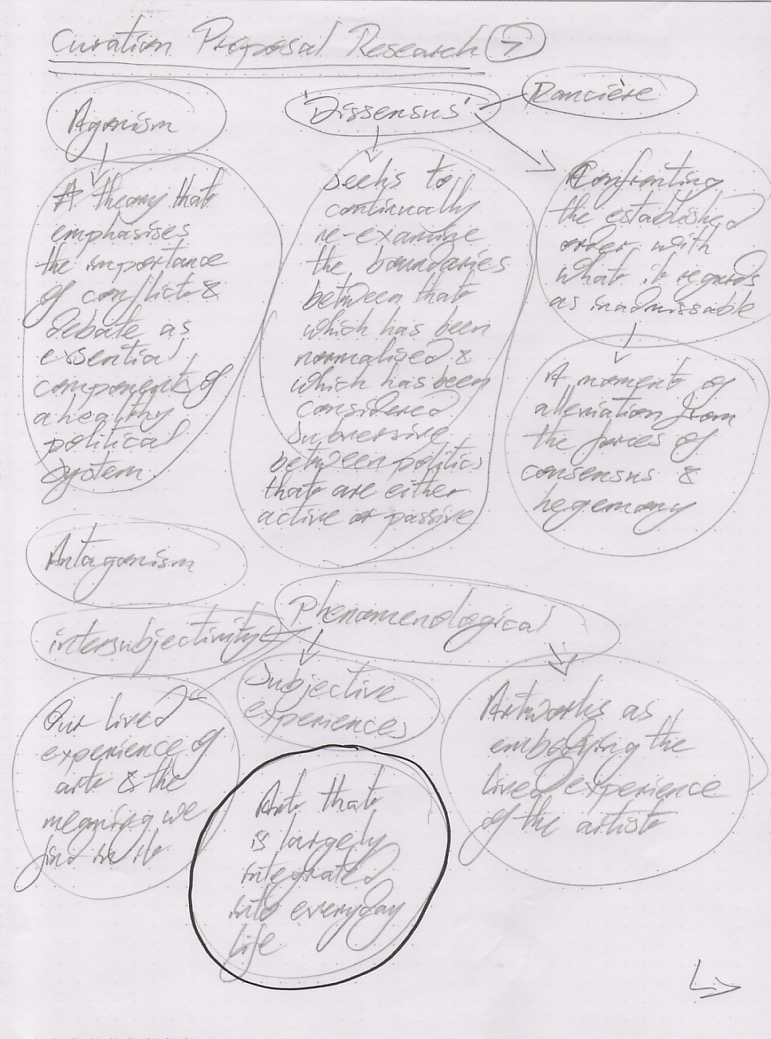 Curation Proposal Research 7
Agonism
A theory that
emphasises
the importance
of conflict &
debate as
essential
components of
a healthy
political
system
'Dissensus'
Rancière
Seeks to
continually
re-examine
the boundaries
between that
which has been
normalised &
which has been
considered
subversive
between politics
that are either
active or passive
Confronting
the established
order with
what it regards
as inadmissable
A moment of
alleviation from
the forces of
consensus &
hegemony
Antagonism
Phenomenological
intersubjectivity
Subjective
experiences
Our lived
experience of
art & the
meaning we
find in it
Art that
is largely
integrated
into everyday
life
Artworks as
embodying the
lived experience
of the artist